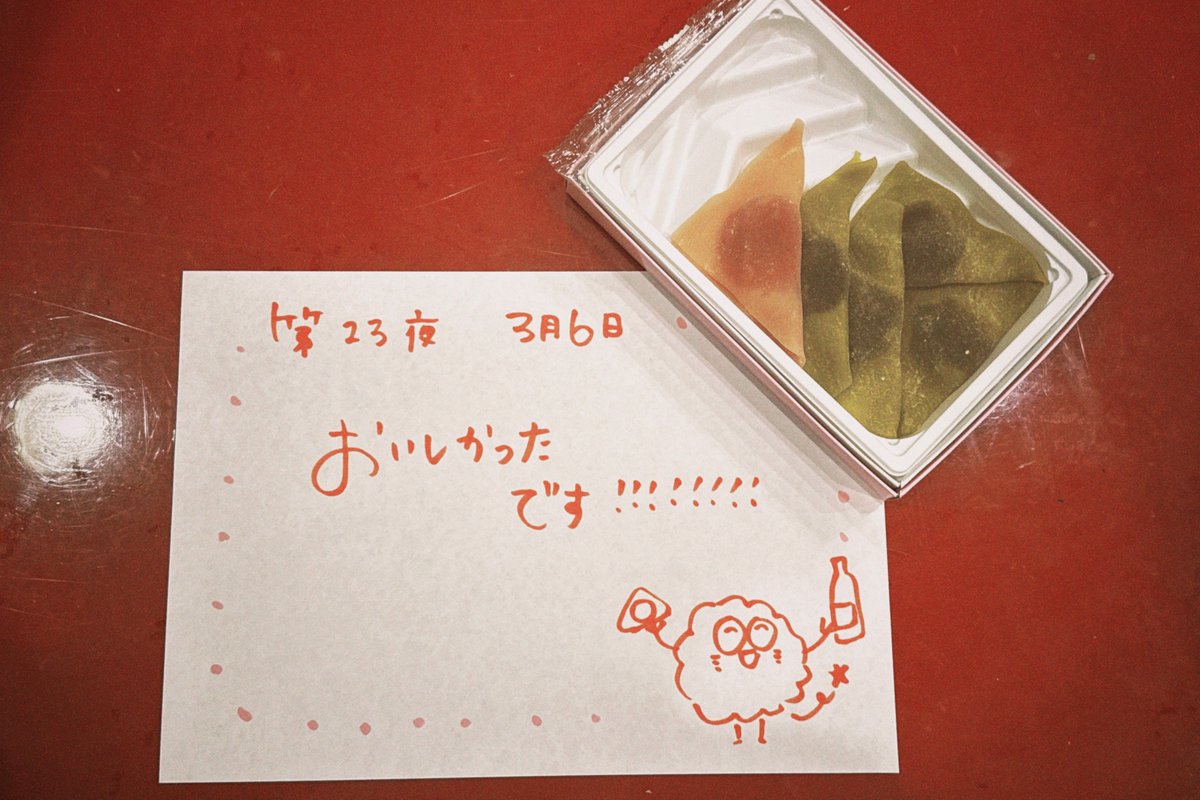 第23夜 3月6日
おいしかった
です!!!!!!!!!